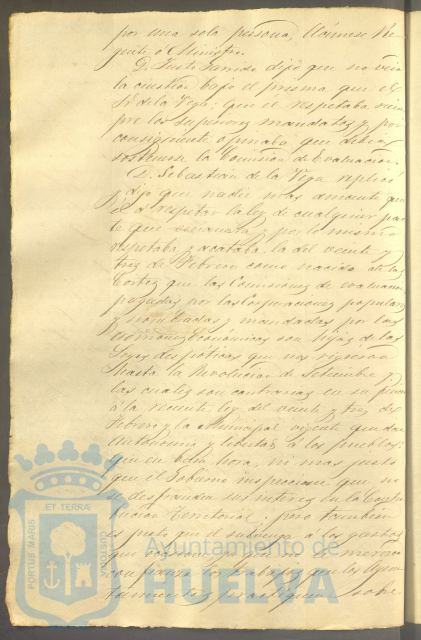 por una sola persona, llámese Re
gente ó Ministro.
D. Justo Garrido dijo que no veia
la cuestion bajo el prisma que el
Sr. de la Vega; que el respetaba siem
pre los superiores mandatos y por
consiguiente opinaba que debia
la Comision de Evaluacion.
D. Sebastian de la Vega replicó
y dijo que nadie mas amante que
él á respetar la ley de cualquier par
te que y por lo mismo
respetaba y acataba la del veinte y
tres de Febrero como nacida de las
Cortes; que las Comisiones de evaluacion
pagadas por las Corporaciones populares
y nombradas y mandadas por las
Económicas son hijas de las
Leyes despóticas que nos rigieron
hasta la Revolucion de Setiembre y
las cuales son contrarias en su
á la reciente ley del veinte y tres de
Febrero y la Municipal vigente que dan
autonomía y libertad á los pueblos:
que en buen hora, ni mas justo
que el Gobierno inspeccione que no
se defrauden sus intereses en la Contri
bucion Territorial, pero tambien
es justo que el á los gastos
que
confianza los trabajos que los Ayun
tamientos practiquen sobre
PORTUS MARIS
ET TERRÆ
CUSTODIA
Ayuntamiento de
HUELVA